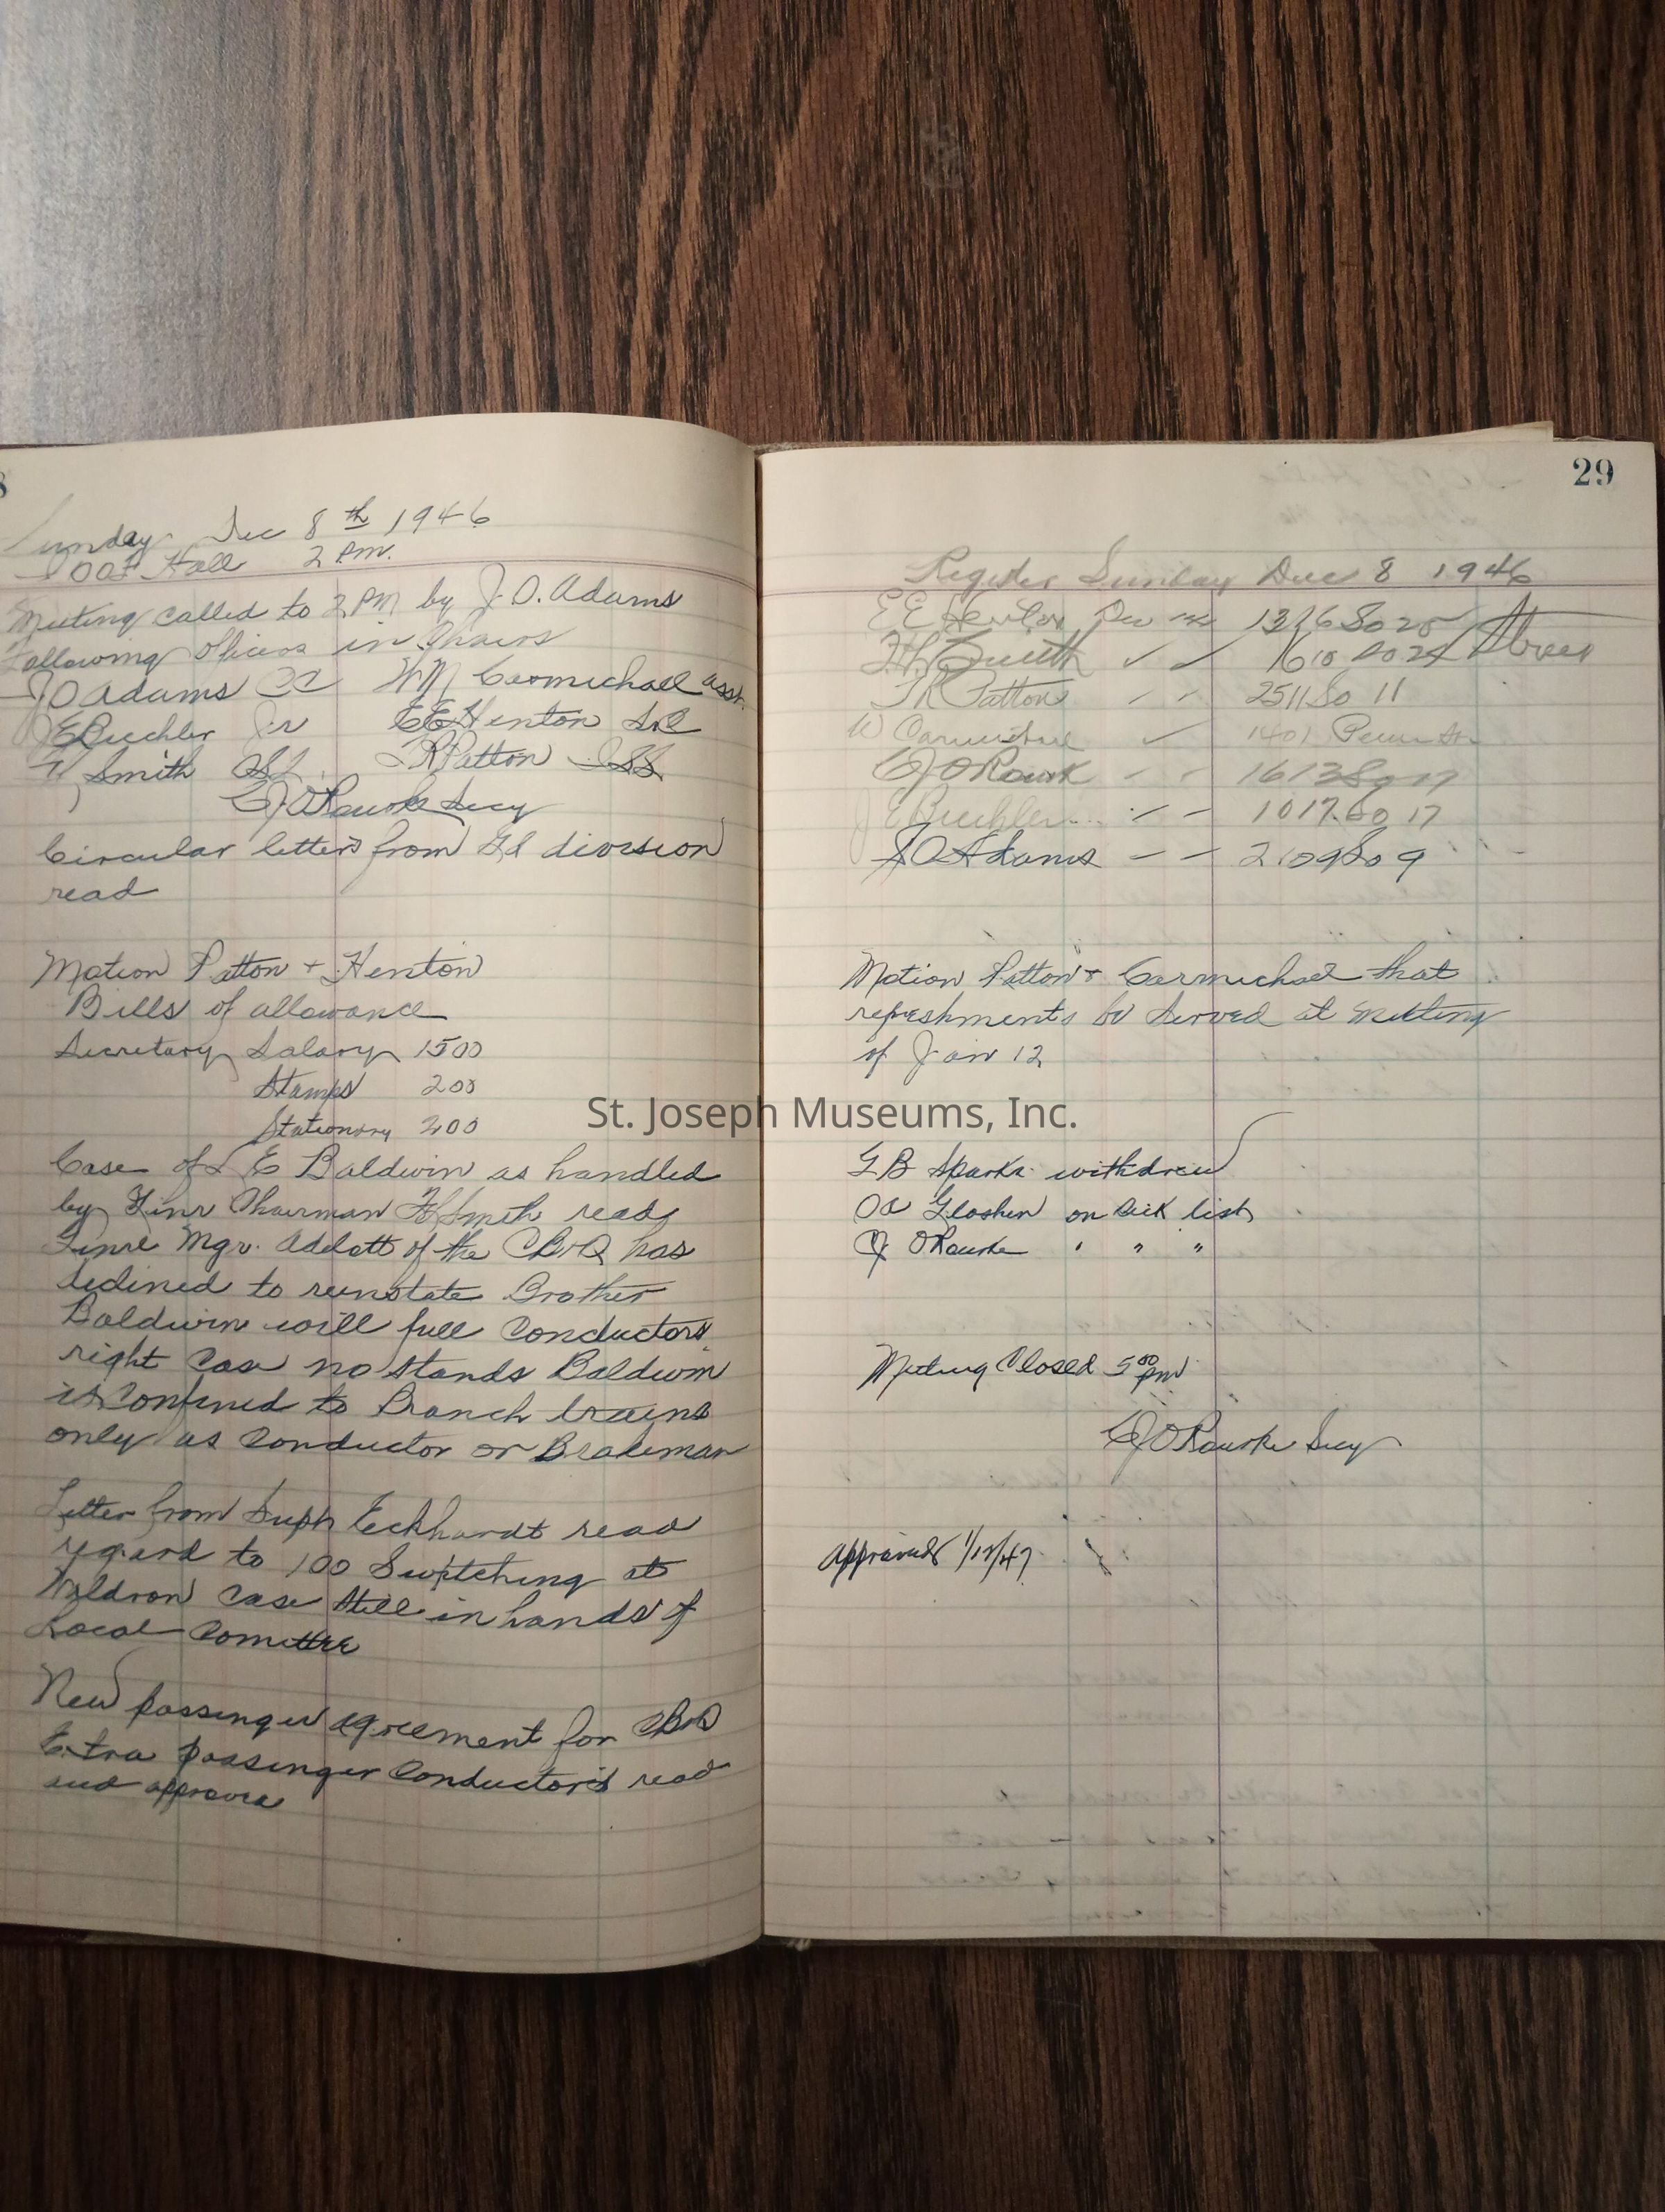 Sunday Dec 8th 1946
IOOF Hall 2 PM.
Meeting called to 2 PM by J.O. Adams
Following officers in Chairs
J O Adams CC W M Carmichael asst.
J E Buchler Jr E E Henton
Smith T R Patton
C J O Rourke Secy
Circular letters from Gd division
read
Motion Patton + Henton
Bills of allowance
Secretary Salary 1500
Stamps 200
Stationary 200
Case of L E Baldwin as handled
by Chairman F H Smith read
Mgr. of the CB+Q has
declined to reinstate Brother
Baldwin will full conductors
right Case no stands Baldwin
is confined to Branch trains
only as Conductor or Brakeman
Letter from Supt Eckhardt read
regard to 100 Switching at
Waldron Case still in hands of
Local Comittee
New passenger agreement for CB+Q
Extra passenger Conductors read
and approved
29
Register Sunday Dec 8 1946
E E Henton Dec 1316 So 25
F.H. Smith 1610 So 24
T R Patton 2511 So 11
W Carmichael 1401 Penn St.
C J O Rourk 1613 So 17
J E Buchler 1017 So 17
J O Adams 2109 So 9
Motion Patton + Carmichael that
refreshments be served at meeting
of Jan 12
St. Joseph Museums, Inc.
G B Sparks withdrew
on sick list
C J O Rourke " " "
Meeting Closed 5 00 pm
C J O Rourke Secy
approved 1/12/47